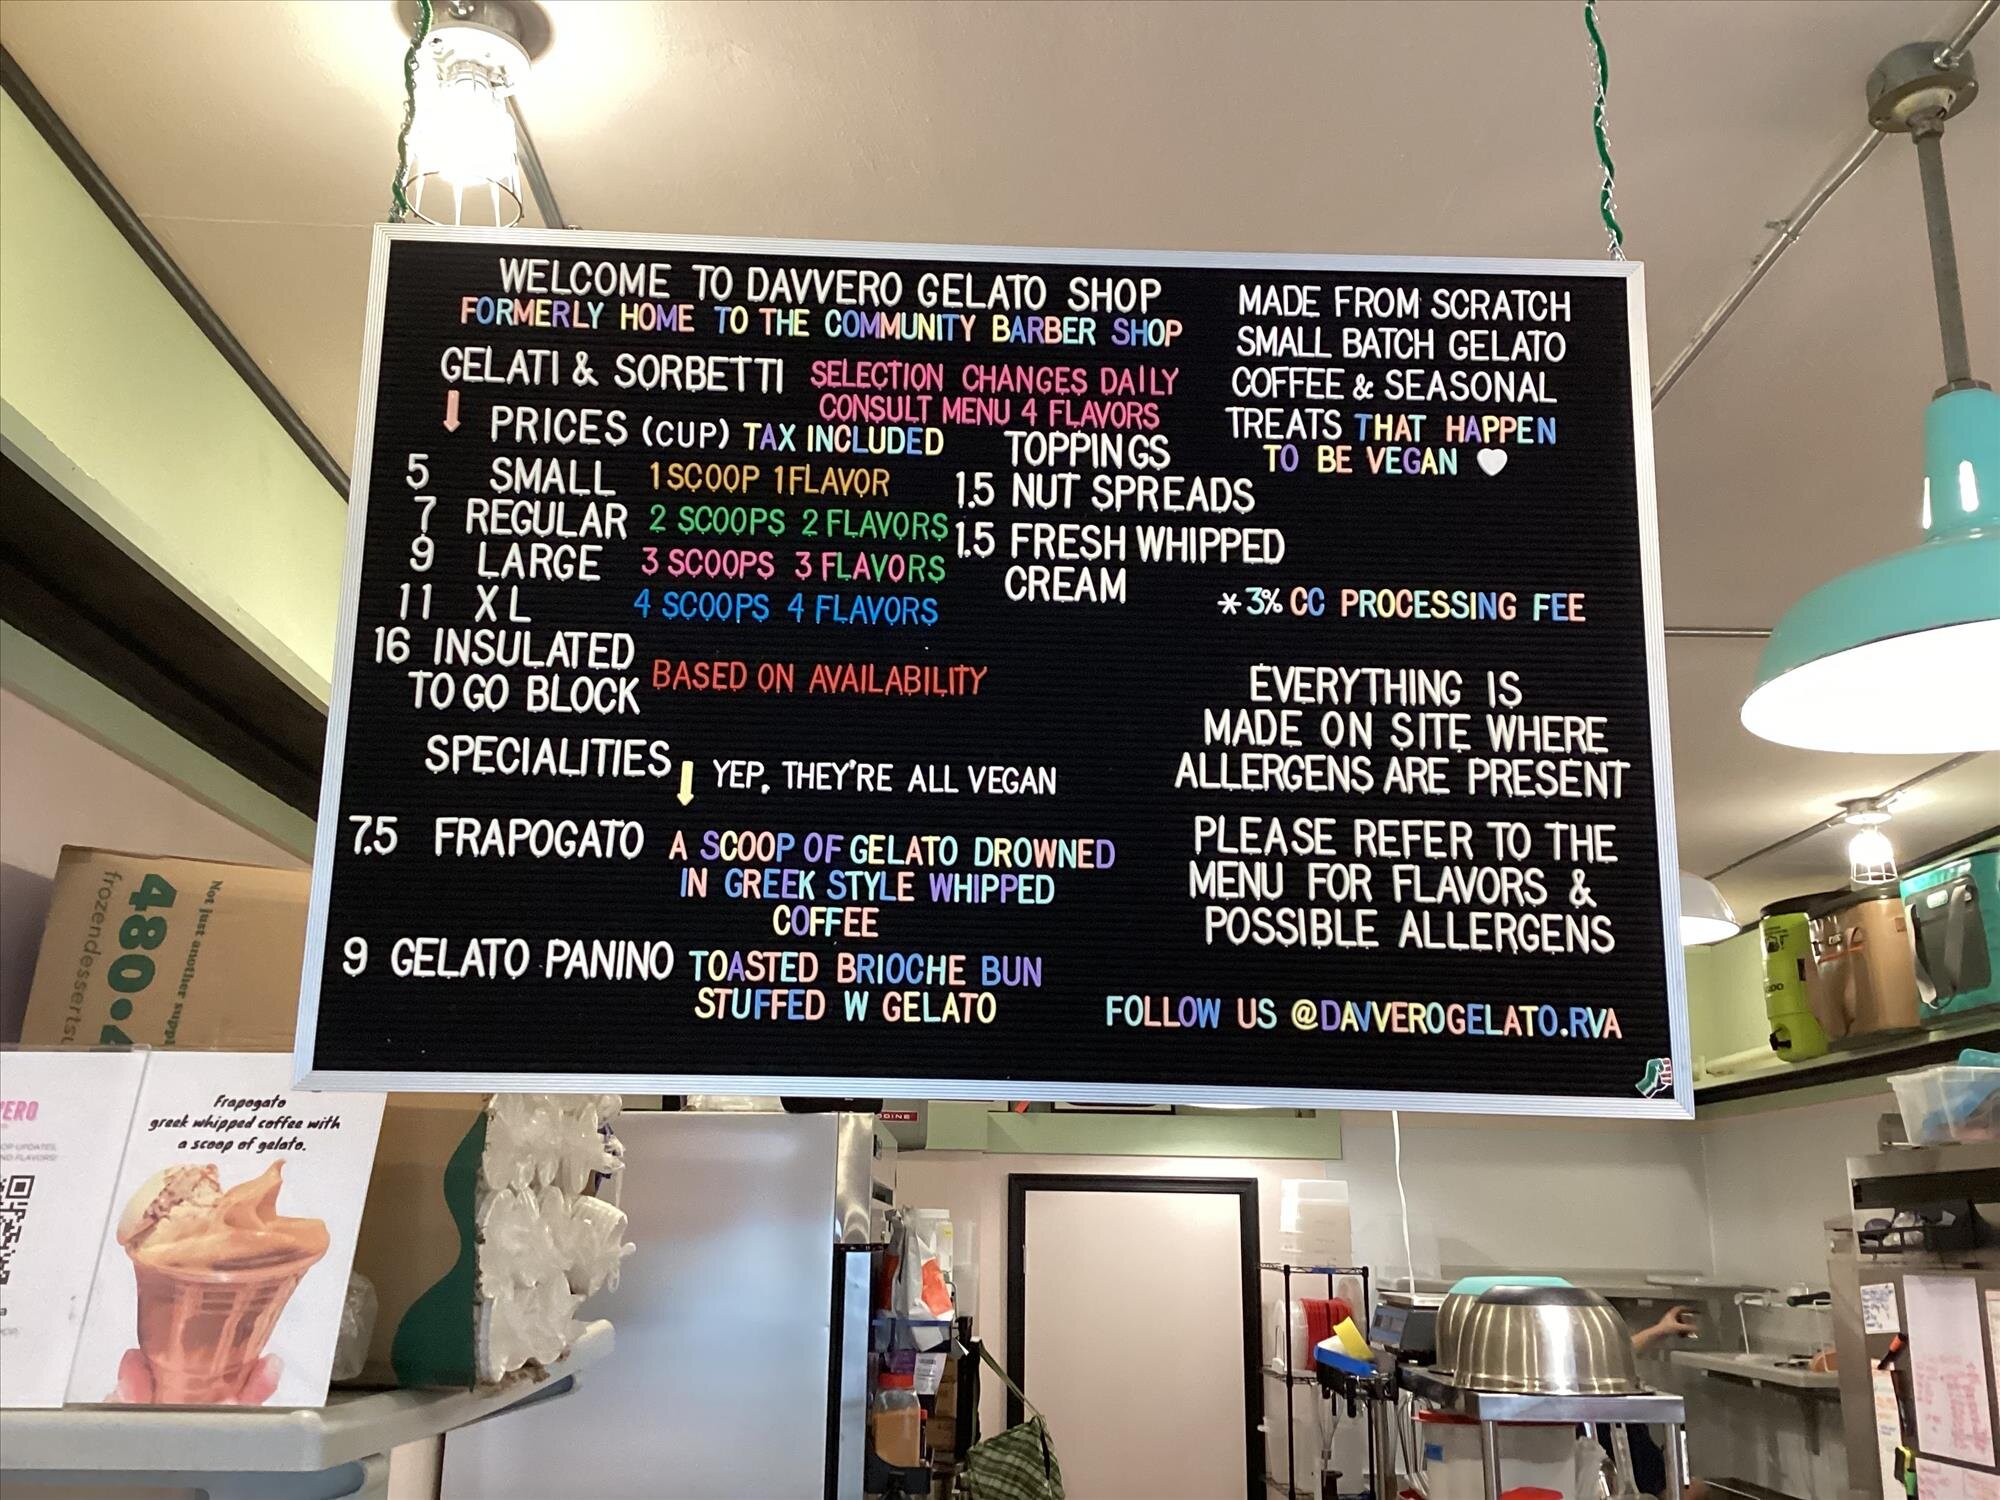 WELCOME TO DAVVERO GELATO SHOP
FORMERLY HOME TO THE COMMUNITY BARBER SHOP
GELATI & SORBETTI
SELECTION CHANGES DAILY
CONSULT MENU 4 FLAVORS
PRICES (CUP) TAX INCLUDED
5 SMALL 1 SCOOP 1 FLAVOR
7 REGULAR 2 SCOOPS 2 FLAVORS
9 LARGE 3 SCOOPS 3 FLAVORS
11 XL 4 SCOOPS 4 FLAVORS
16 INSULATED
TO GO BLOCK
BASED ON AVAILABILITY
TOPPINGS
1.5 NUT SPREADS
1.5 FRESH WHIPPED
CREAM
SPECIALITIES
YEP, THEY'RE ALL VEGAN
7.5 FRAPOGATO A SCOOP OF GELATO DROWNED
IN GREEK STYLE WHIPPED
COFFEE
9 GELATO PANINO TOASTED BRIOCHE BUN
STUFFED W GELATO
MADE FROM SCRATCH
SMALL BATCH GELATO
COFFEE & SEASONAL
TREATS THAT HAPPEN
TO BE VEGAN
*3% CC PROCESSING FEE
EVERYTHING IS
MADE ON SITE WHERE
ALLERGENS ARE PRESENT
PLEASE REFER TO THE
MENU FOR FLAVORS &
POSSIBLE ALLERGENS
FOLLOW US @DAVVEROGELATO.RVA
Not just another suppl
480.4
frozendesserts
VERO
Frapogato
greek whipped coffee with
a scoop of gelato.